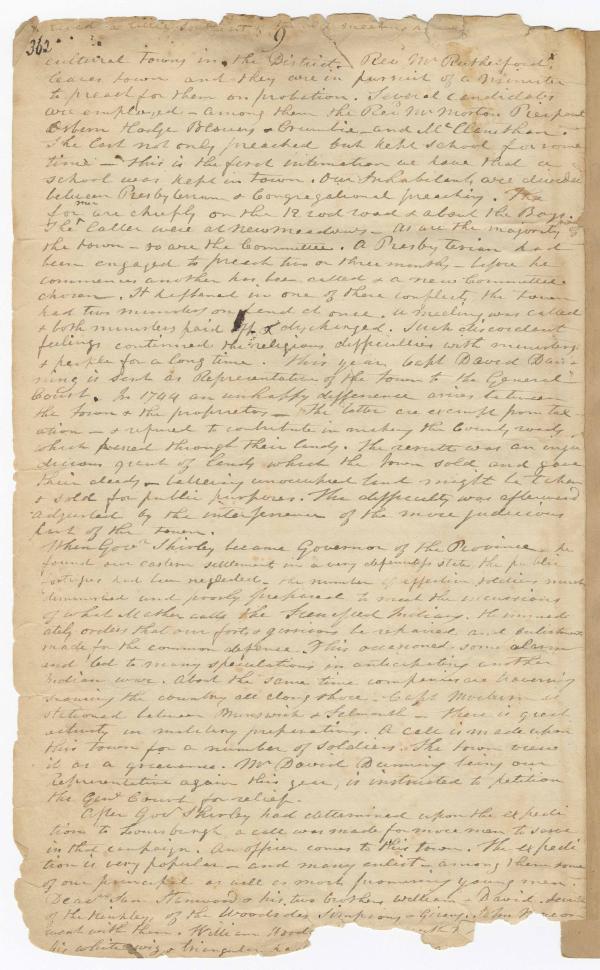 362
9
cultural towns in the District. Revd Mr Rutherford
leaves town and they are in pursuit of a Minister
to preach for them on probation. Several candidates
are employed – among them the Revd Mr Morton
Osborn Hodge Blowers & Crumbie and McClenethan.
The last not only preached but kept school for some
time – this is the first intimation we have that a
school was kept in town. Our Inhabitants are divided
between Presbyterian & Congregational preaching. The
former are chiefly on the 12 rod road & about the Bay.
The latter were at New meadows – as are the majority of
the town – so are the Committee. A Presbyterian had
been engaged to preach two or three months – before he
commences another has been called & a new Committee
chosen. It happened in one of these conflicts the town
had two ministers on hand at once. A meeting was called
& both ministers paid off & discharged. Such discordant
feelings continued the religious difficulties with ministers
& people for a long time. This year Capt David Dun-
ning is sent as Representative of the town to the General
Court. In 1744 an unhappy difference arises between
the town & the proprietors – The latter are exempt from tax-
ation – & refused to contribute in making the County roads
which passed through their lands. The result was an inju-
dicious grant of lands which the town sold and gave
their deeds – believing unoccupied land might be taken
& sold for public purposes. The difficulty was afterward
adjusted by the interference of the more judicious
part of the town.
When Govr Shirley became Governor of the Province he
found our eastern settlement in a very defenceless state the public
had been neglected – the number of effective soldiers much
diminished and poorly prepared to meet the incursions
of what Mather calls the Indians. He immedi
ately orders that our forts & garrisons be repaired and enlistments
made for the common defence. This occasioned some alarm
and led to many speculations in anticipating another
Indian war. About the same time companies are
the country all along shore – Capt is
stationed between Brunswick & Falmouth – there is great
activity in military preparations. A call is made upon
this town for a number of soldiers. The town views
it as a grievance. Mr David Dunning being our
representative again this year, is instructed to petition
the Genl Court for relief.
After Govr Shirley had determined upon the expedi
tion to Louisburgh a call was made for more men to serve
in that campaign. An officer comes to this town. The expedi
tion is very popular – and many enlist – among them some
of our principal as well as most promising young men
Deacn Sam Stanwood & his two brothers William & David.
of the Hinkleys, of the Woodsides Simpsons & Grays. John
went with them. William
his white wig & triangular